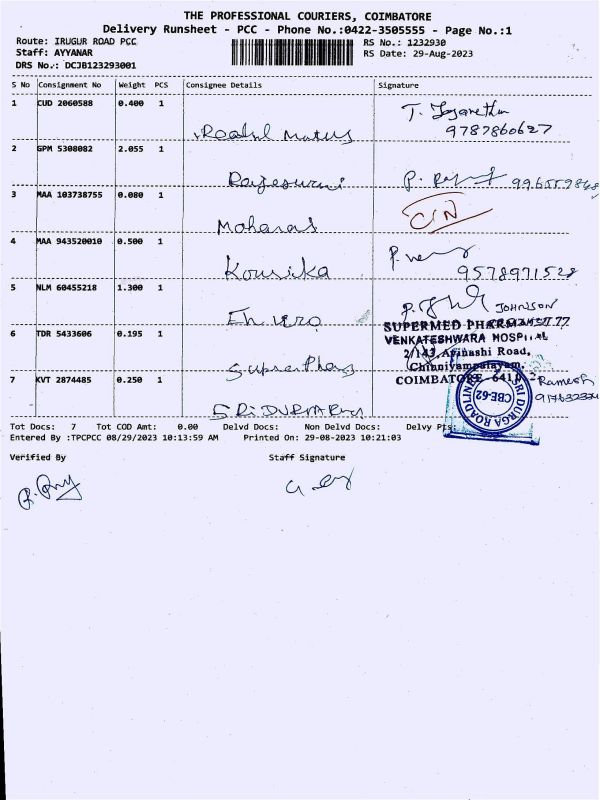 THE PROFESSIONAL COURIERS, COIMBATORE
Delivery Runsheet - PCC - Phone No.:0422-3505555 - Page No.:1
Route: IRUGUR ROAD PCC
Staff: AYYANAR
DRS No.: DCJB123293001
RS No.: 1232930
RS Date: 29-Aug-2023
S No Consignment No Weight PCS Consignee Details Signature
1 CUD 2060588 0.400 1
9787860627
2 GPM 5308082 2.055 1
Rajeswari
3 MAA 103738755 0.080 1
Maharas
4 MAA 943520010 0.500 1
Kousika
9578971528
5 NLM 60455218 1.300 1
JOHNSON
SUPERMED PHARMA
VENKATESHWARA HOSPITAL
2/143, Avinashi Road,
Chinniyampalayam,
COIMBATORE - 641
6 TDR 5433606 0.195 1
7 KVT 2874485 0.250 1
SRI DURGA
Ramesh
SRI DURGA ROADLINES
CBE-62
Tot Docs: 7 Tot COD Amt: 0.00 Delvd Docs: Non Delvd Docs: Delvy Pts:
Entered By :TPCPCC 08/29/2023 10:13:59 AM Printed On: 29-08-2023 10:21:03
Verified By Staff Signature